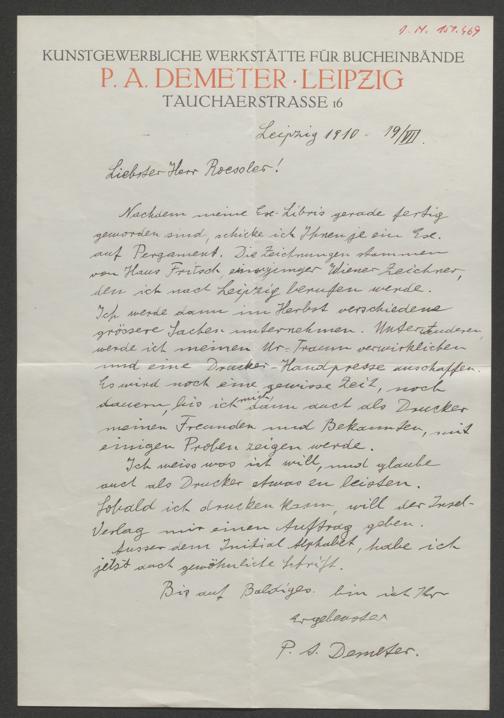 I.N. 151.469
KUNSTGEWERBLICHE WERKSTÄTTE FÜR BUCHEINBÄNDE
P. A. DEMETER · LEIPZIG
TAUCHAERSTRASSE 16
Leipzig 1910 - 19/VII.
Liebster Herr Roessler!
Nachdem meine Ex-Libris gerade fertig
geworden sind, schicke ich Ihnen je ein Ex.
auf Pergament. Die Zeichnungen stammen
von Hans Fritsch, ein junger Wiener Zeichner,
den ich nach Leipzig berufen werde.
Ich werde dann im Herbst verschiedene
grössere Sachen unternehmen. Unter anderen,
werde ich meinen Ur-Traum verwirklichen
und eine Drucker-Handpresse anschaffen.
Es wird noch eine gewisse Zeit, noch
dauern, bis ich mich, dann auch als Drucker
meinen Freunden und Bekannten, mit
einigen Proben zeigen werde.
Ich weiss was ich will, und glaube
auch als Drucker etwas zu leisten.
Sobald ich drucken kann, will der Insel-
Verlag mir einen Auftrag geben.
Ausser dem Initial Alphabet, habe ich
jetzt auch gewöhnliche Schrift.
Bis auf Baldiges bin ich Ihr
ergebenster
P. A. Demeter.